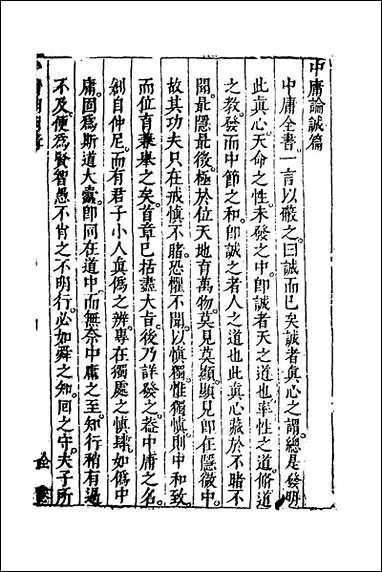 中庸論誠篇
中庸全書一言以蔽之曰誠而已矣誠者眞心之謂總是發明
此眞心天命之性未發之中卽誠者天之道也率性之道脩道
之教發而中節之和卽誠之者人之道也此眞心藏於不睹不
聞最隱最微極於位天地育萬物莫見莫顯顯見卽在隱微中
故其功夫只在戒愼不睹恐懼不聞以愼獨惟獨愼則中和致
而位育兼舉之矣首章已括盡大旨後乃詳發之葢中庸之名
創自仲尼而有君子小人眞僞之辨專在獨處之愼肆如僞中
庸固爲斯道大蠹卽同在道中而無奈中庸之至知行稍有過
不及便爲賢智愚不肖之不明行必如舜之知回之守夫子所